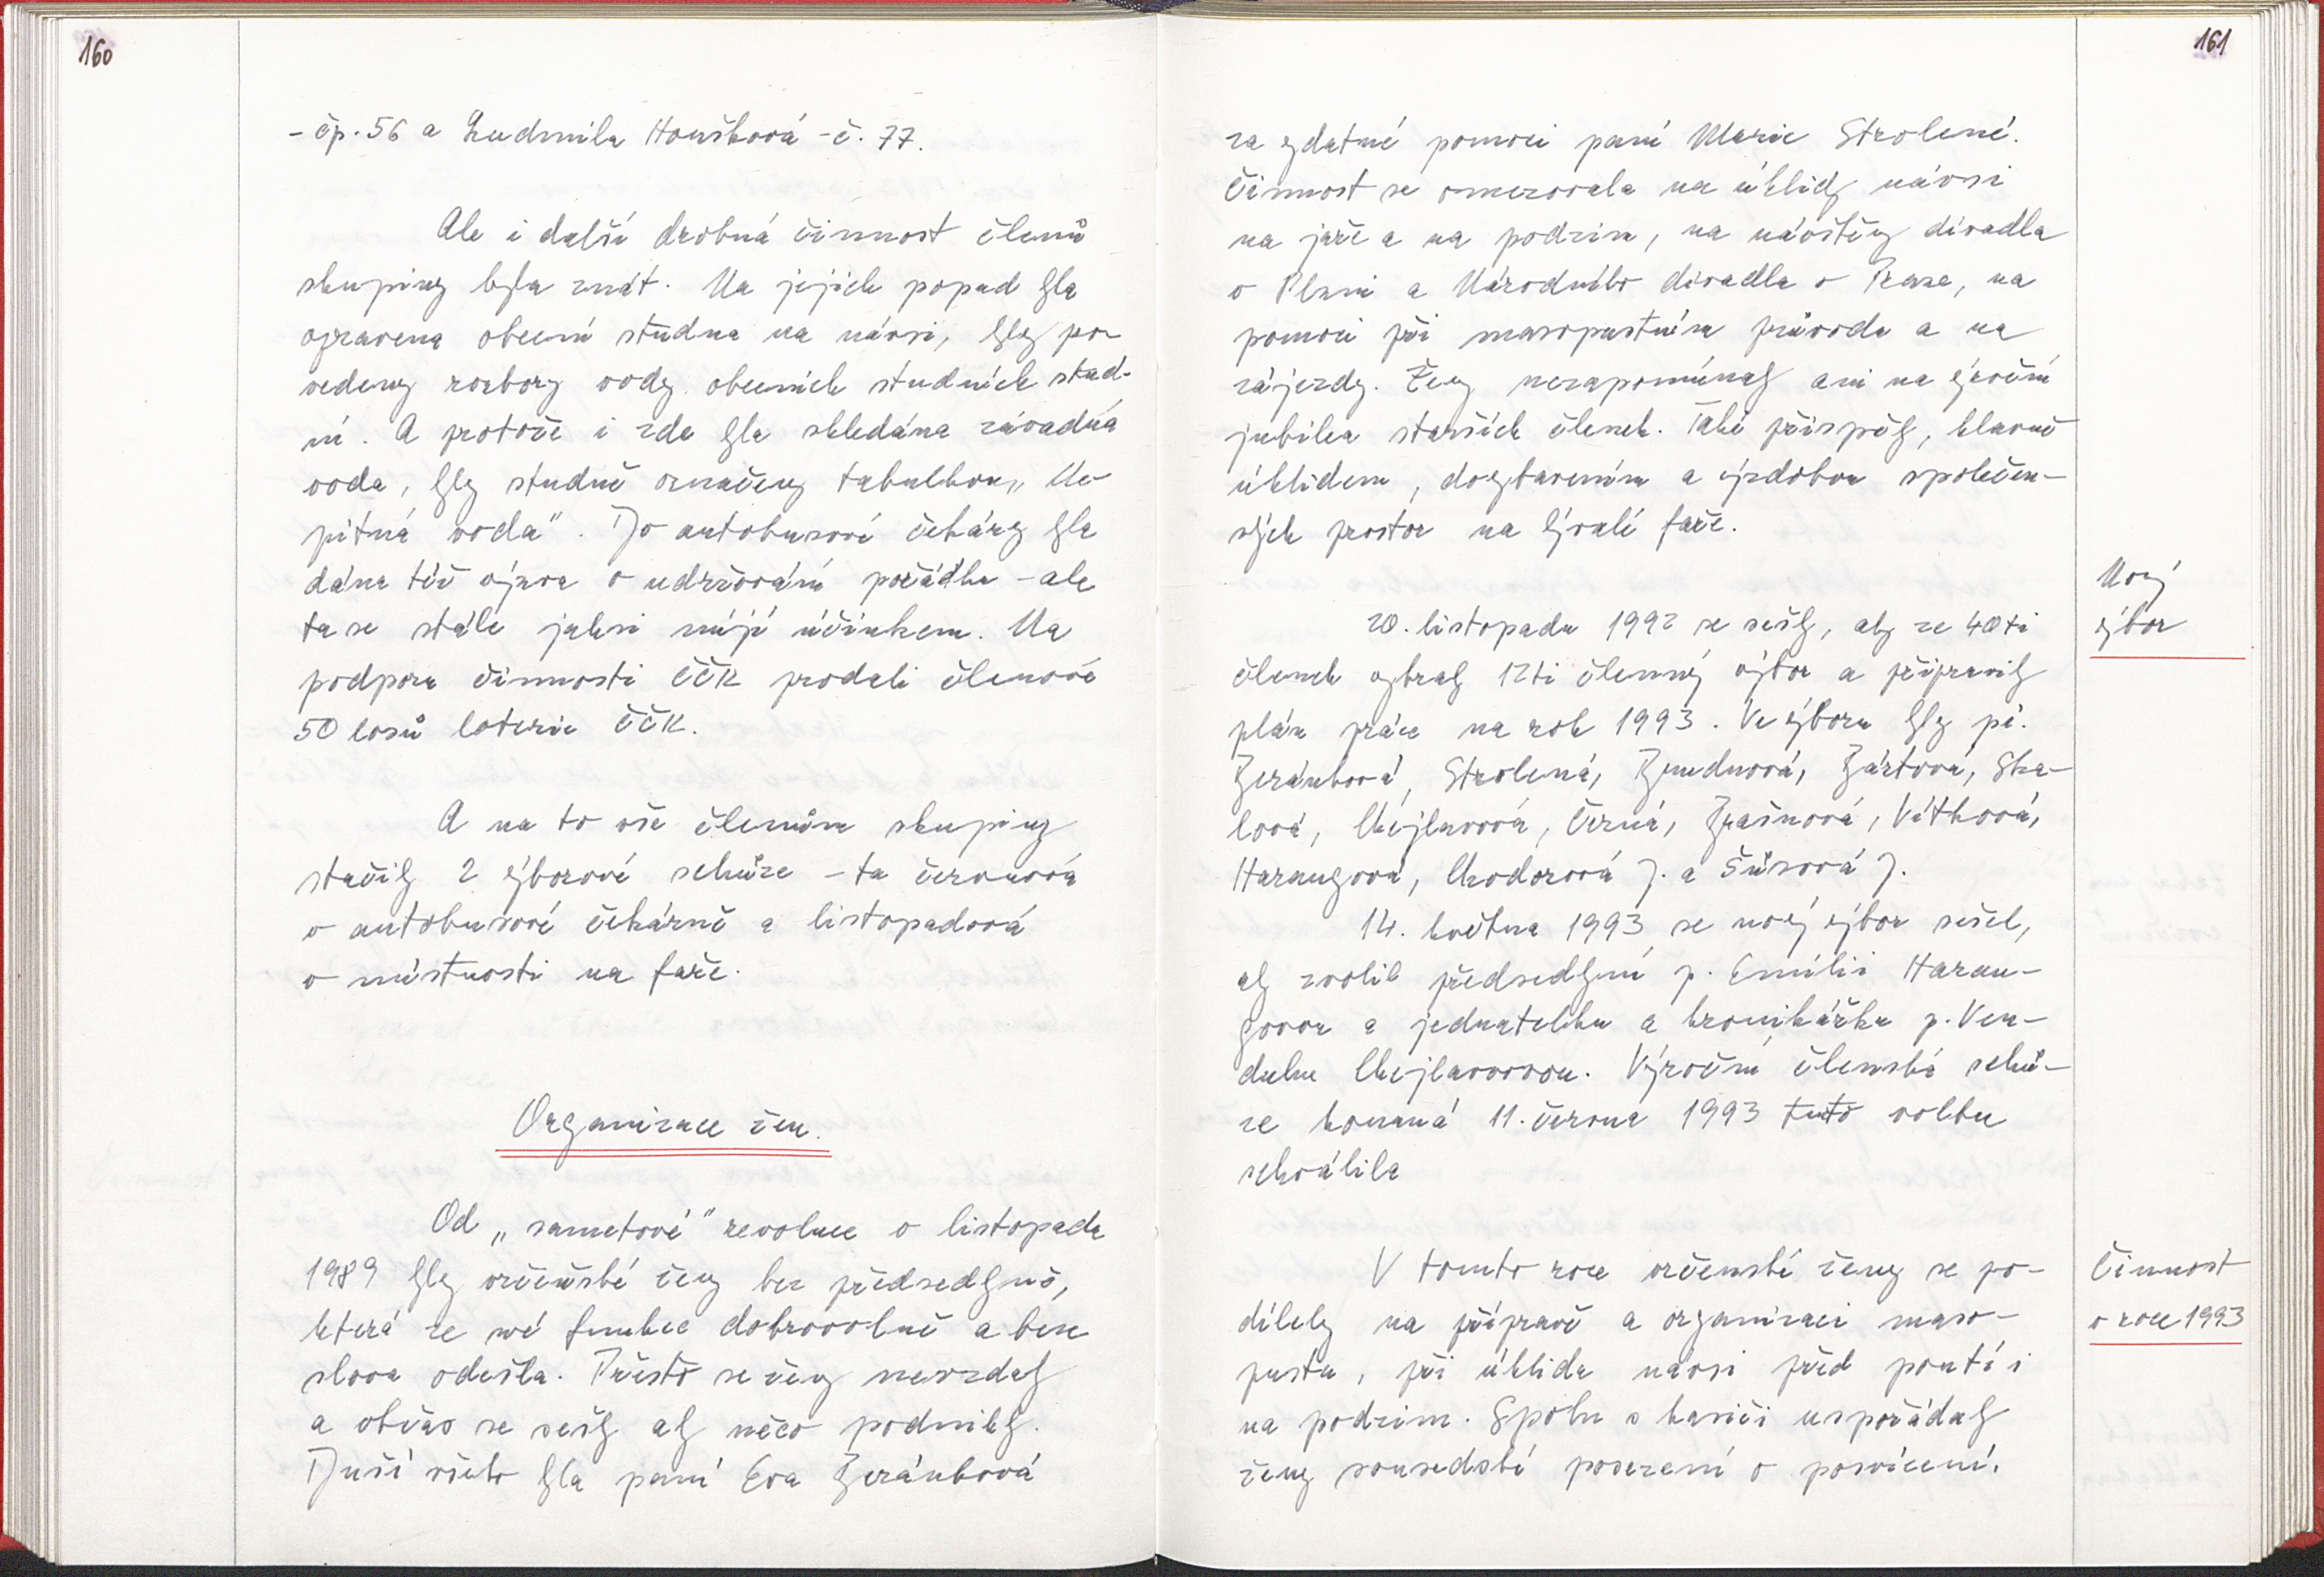 160
- čp. 56 a Ludmila Houšková - č. 77.
Ale i další drobná činnost členů
skupiny byla znát. Na jejich popud byla
opravena obecní studna na návsi, byly pro-
vedeny rozbory vody obecních studních stud-
ní. A protože i zde byla shledána závadná
voda, byly studně označeny tabulkou „Ne
pitná voda“. Do autobusové čekárny byla
dána též výzva o udržování pořádku - ale
ta se stále jaksi míjí účinkem. Na
podporu činnosti ČČK prodali členové
50 losů loterie ČČK.
A na to vše členům skupiny
stačily 2 výborové schůze - ta červnová
v autobusové čekárně a listopadová
v místnosti na faře.
Organizace žen.
Od „sametové“ revoluce v listopadu
1989 byly vrčeňské ženy bez předsedkyně,
která ze své funkce dobrovolně a beze
slova odešla. Přesto se ženy nevzdaly
a občas se sešly aby něco podnikly.
Duší všeho byla paní Eva Beránková
161
za zdatné pomoci paní Marie Strolené.
Činnost se omezovala na úklidy návsi
na jaře a na podzim, na návštěvy divadla
v Plzni a Národního divadla v Praze, na
pomoci při masopustním průvodu a na
zájezdy. Ženy nezapomínaly ani na výroční
jubilea starších členek. Také přispěly, hlavně
úklidem, dovybavením a výzdobou společen-
ských prostor na bývalé faře.
Nový
výbor
20. listopadu 1992 se sešly, aby ze 40ti
členek vybraly 12ti členný výbor a připravily
plán práce na rok 1993. Ve výboru byly pí.
Beránková, Strolená, Bártová, Ska-
lová, Chejlavová, Černá, Brašnová, Vítková,
Harangová, Chodorová J. a Šůsová J.
14. května 1993 se nový výbor sešel,
aby zvolil předsedkyní p. Emílii Haran-
govou a jednatelku a kronikářku p. Ven-
dulu Chejlavovou. Výroční členská schů-
ze konaná 11. června 1993 tuto volbu
schválila
Činnost
v roce 1993
V tomto roce vrčenské ženy se po-
dílely na přípravě a organizaci maso-
pustu, při úklidu návsi před poutí i
na podzim. Spolu s hasiči uspořádaly
ženy sousedské posezení o posvícení.